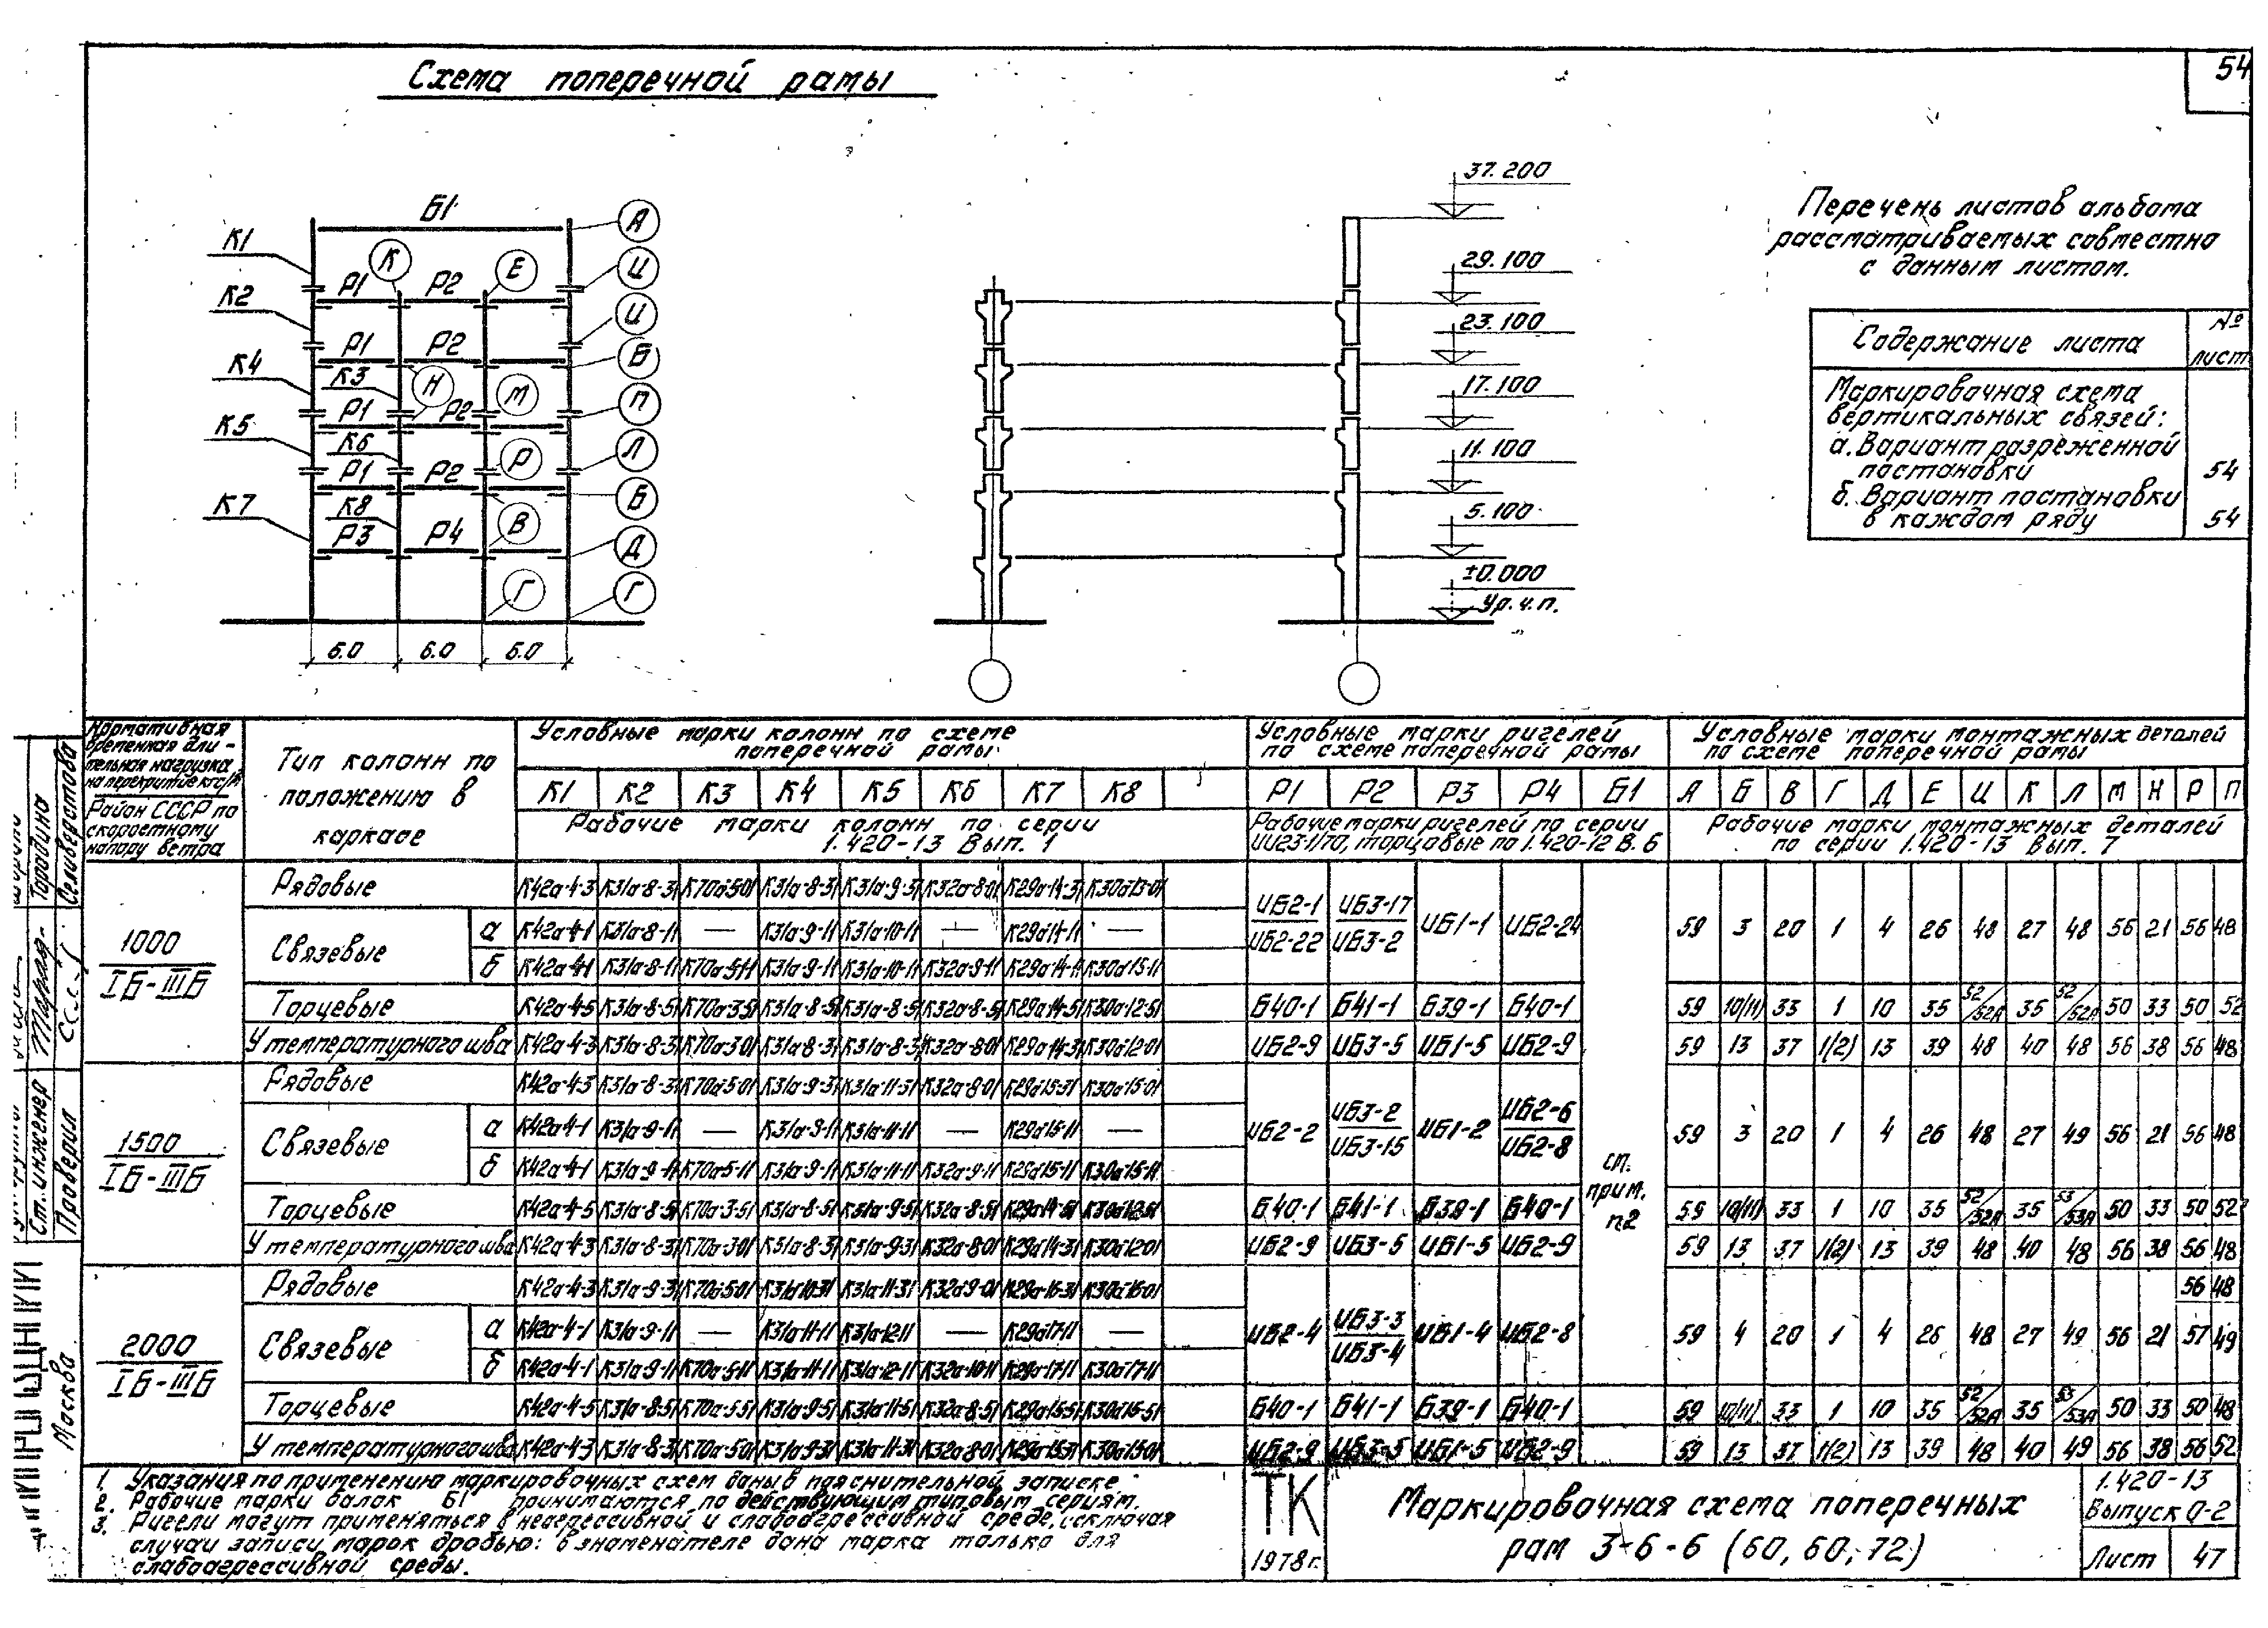 Схема поперечной рамы
54
Б1
К1
К2
К4
К5
К7
К3
К6
К8
Р1 Р2
Р1 Р2
Р1 Р2
Р1 Р2
Р3 Р4
К
Е
Н
М
Р
В
Г
А
И
И
Б
П
Л
Б
Д
Г
6.0 6.0 6.0
37.200
29.100
23.100
17.100
11.100
5.100
±0.000
Ур.ч.п.
Перечень листов альбома
рассматриваемых совместно
с данным листом.
Содержание листа № лист
Маркировочная схема
вертикальных связей:
а. Вариант разреженной
постановки 54
б. Вариант постановки
в каждом ряду 54
Нормативная
временная дли-
тельная нагрузка
на перекрытие кгс/м²
Район СССР по
скоростному
напору ветра
Тип колонн по
положению в
каркасе
Условные марки колонн по схеме
поперечной рамы
К1 К2 К3 К4 К5 К6 К7 К8
Рабочие марки колонн по серии
1.420-13 Вып. 1
Условные марки ригелей
по схеме поперечной рамы
Р1 Р2 Р3 Р4 Б1
Рабочие марки ригелей по серии
ИИ23-1/70, торцовые по 1.420-12 В.6
Условные марки монтажных деталей
по схеме поперечной рамы
А Б В Г Д Е И К Л М Н Р П
Рабочие марки монтажных деталей
по серии 1.420-13 Вып. 7
1000
IБ-IIIБ
Рядовые К42а-4-3 К31а-8-31 К70а-5-01 К31а-8-31 К31а-9-31 К32а-8-01 К29а-14-31 К30а-13-01
Связевые
а К42а-4-1 К31а-8-11 — К31а-9-11 К31а-10-11 — К29а-14-11 —
б К42а-4-1 К31а-8-11 К70а-5-11 К31а-9-11 К31а-10-11 К32а-9-11 К29а-14-11 К30а-15-11
ИБ2-1 ИБ3-17 ИБ1-1 ИБ2-24
ИБ2-22 ИБ3-2
59 3 20 1 4 26 48 27 48 56 21 56 48
Торцевые К42а-4-5 К31а-8-51 К70а-3-51 К31а-8-51 К31а-8-51 К32а-8-51 К29а-14-51 К30а-12-51 Б40-1 Б41-1 Б39-1 Б40-1 59 10(11) 33 1 10 35 52/52А 35 52/52А 50 33 50 52
У температурного шва К42а-4-3 К31а-8-31 К70а-3-01 К31а-8-31 К31а-8-31 К32а-8-01 К29а-14-31 К30а-12-01 ИБ2-9 ИБ3-5 ИБ1-5 ИБ2-9 59 13 37 1(2) 13 39 48 40 48 56 38 56 48
1500
IБ-IIIБ
Рядовые К42а-4-3 К31а-8-31 К70а-5-01 К31а-9-31 К31а-11-31 К32а-8-01 К29а-15-31 К30а-15-01
Связевые
а К42а-4-1 К31а-9-11 — К31а-9-11 К31а-11-11 — К29а-15-11 —
б К42а-4-1 К31а-9-11 К70а-5-11 К31а-9-11 К31а-11-11 К32а-9-11 К29а-15-11 К30а-15-11
ИБ2-2 ИБ3-2 ИБ1-2 ИБ2-6
ИБ3-15 ИБ2-8
59 3 20 1 4 26 48 27 49 56 21 56 48
см.
прим.
п2
Торцевые К42а-4-5 К31а-8-51 К70а-3-51 К31а-8-51 К31а-9-51 К32а-8-51 К29а-14-51 К30а-12-51 Б40-1 Б41-1 Б39-1 Б40-1 59 10(11) 33 1 10 35 52/52А 35 53/53А 50 33 50 52
У температурного шва К42а-4-3 К31а-8-31 К70а-3-01 К31а-8-31 К31а-9-31 К32а-8-01 К29а-14-31 К30а-12-01 ИБ2-9 ИБ3-5 ИБ1-5 ИБ2-9 59 13 37 1(2) 13 39 48 40 48 56 38 56 48
2000
IБ-IIIБ
Рядовые К42а-4-3 К31а-9-31 К70а-5-01 К31а-10-31 К31а-11-31 К32а-9-01 К29а-16-31 К30а-16-01 56 48
Связевые
а К42а-4-1 К31а-9-11 — К31а-11-11 К31а-12-11 — К29а-17-11 —
б К42а-4-1 К31а-9-11 К70а-5-11 К31а-11-11 К31а-12-11 К32а-10-11 К29а-17-11 К30а-17-11
ИБ2-4 ИБ3-3 ИБ1-4 ИБ2-8
ИБ3-4
59 4 20 1 4 26 48 27 49 56 21 57 49
Торцевые К42а-4-5 К31а-8-51 К70а-5-51 К31а-9-51 К31а-11-51 К32а-8-51 К29а-15-51 К30а-15-51 Б40-1 Б41-1 Б39-1 Б40-1 59 10(11) 33 1 10 35 52/52А 35 53/53А 50 33 50 48
У температурного шва К42а-4-3 К31а-8-31 К70а-5-01 К31а-9-31 К31а-11-31 К32а-8-01 К29а-15-31 К30а-15-01 ИБ2-9 ИБ3-5 ИБ1-5 ИБ2-9 59 13 37 1(2) 13 39 48 40 49 56 38 56 52
1. Указания по применению маркировочных схем даны в пояснительной записке.
2. Рабочие марки балок Б1 принимаются по действующим типовым сериям.
3. Ригели могут применяться в неагрессивной и слабоагрессивной среде, исключая
случаи записи марок дробью: в знаменателе дана марка только для
слабоагрессивной среды.
ТК
1978г.
Маркировочная схема поперечных
рам 3-6-6 (60, 60, 72)
1.420-13
Выпуск 0-2
Лист 47
Ст. инженер
Проверил
Тарадина
Селивертова
Москва